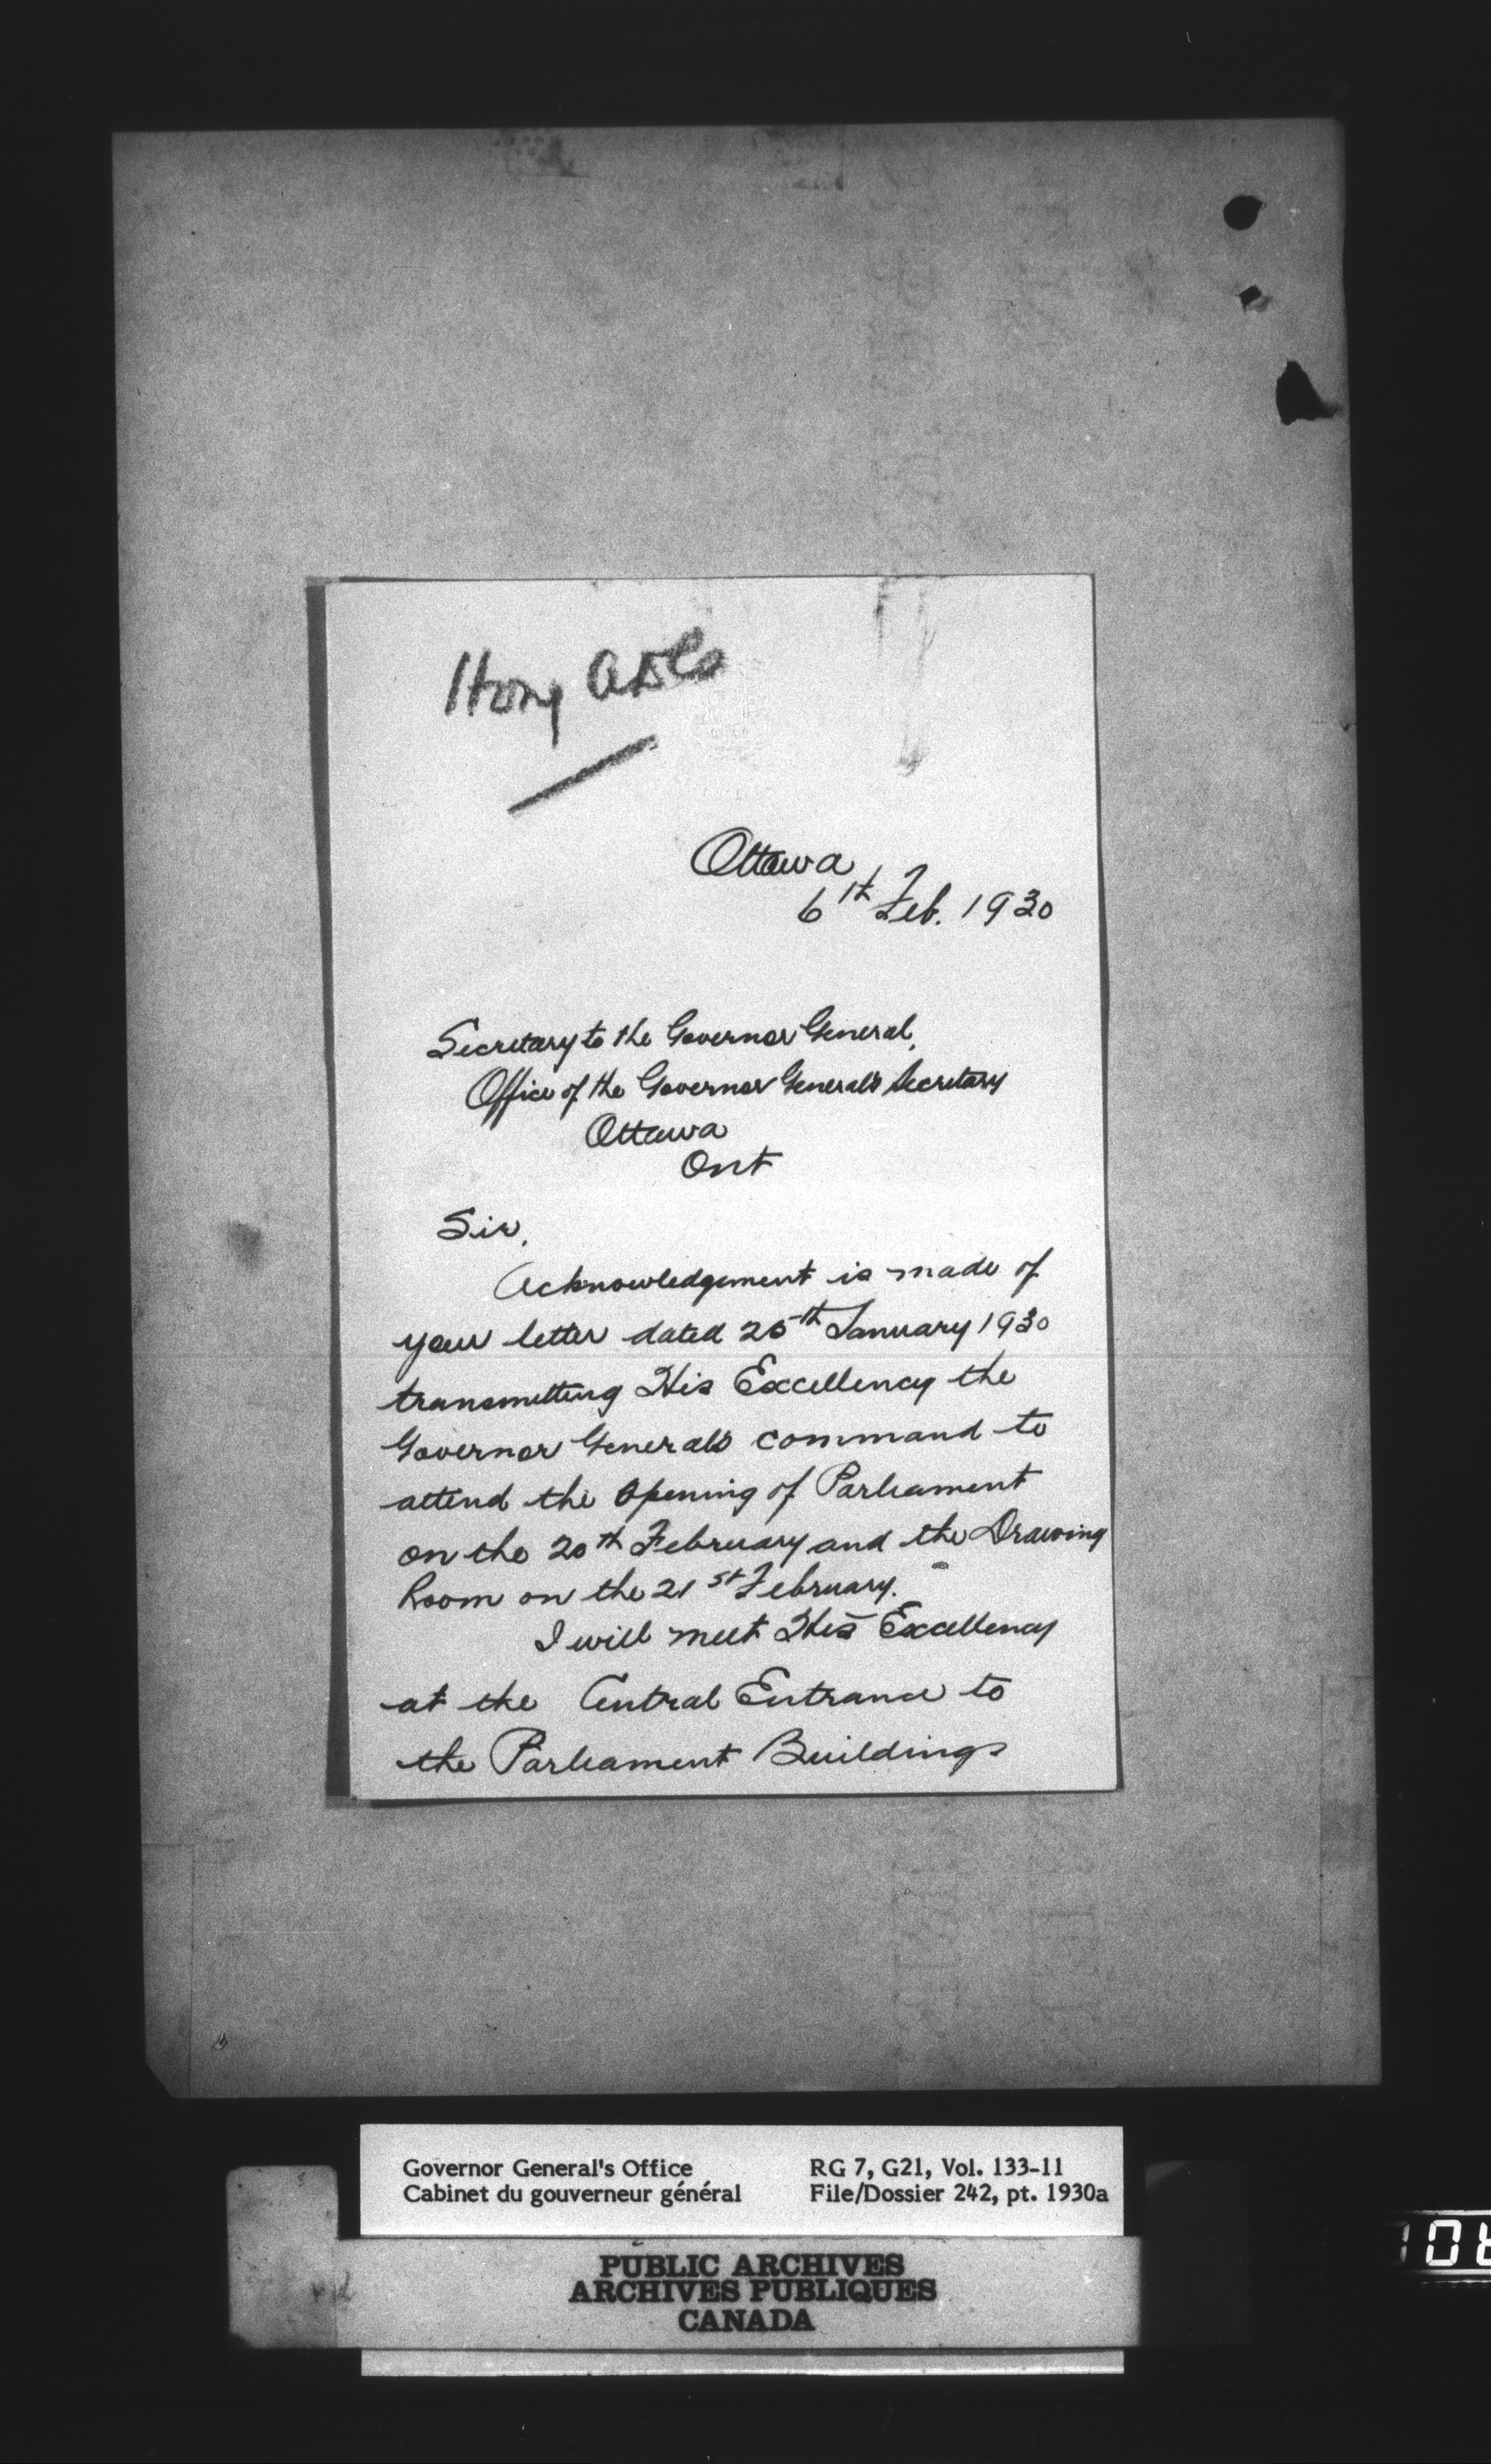 Hony ADCs
Ottawa
6th Feb. 1930
Secretary to the Governor General,
Office of the Governor General's Secretary
Ottawa
Ont
Sir,
Acknowledgement is made of
your letter dated 25th January 1930
transmitting His Excellency the
Governor General's command to
attend the Opening of Parliament
on the 20th February and the Drawing
Room on the 21st February.
I will meet His Excellency
at the Central Entrance to
the Parliament Buildings
Governor General's Office
Cabinet du gouverneur général
RG 7, G21, Vol. 133-11
File/Dossier 242, pt. 1930a
PUBLIC ARCHIVES
ARCHIVES PUBLIQUES
CANADA